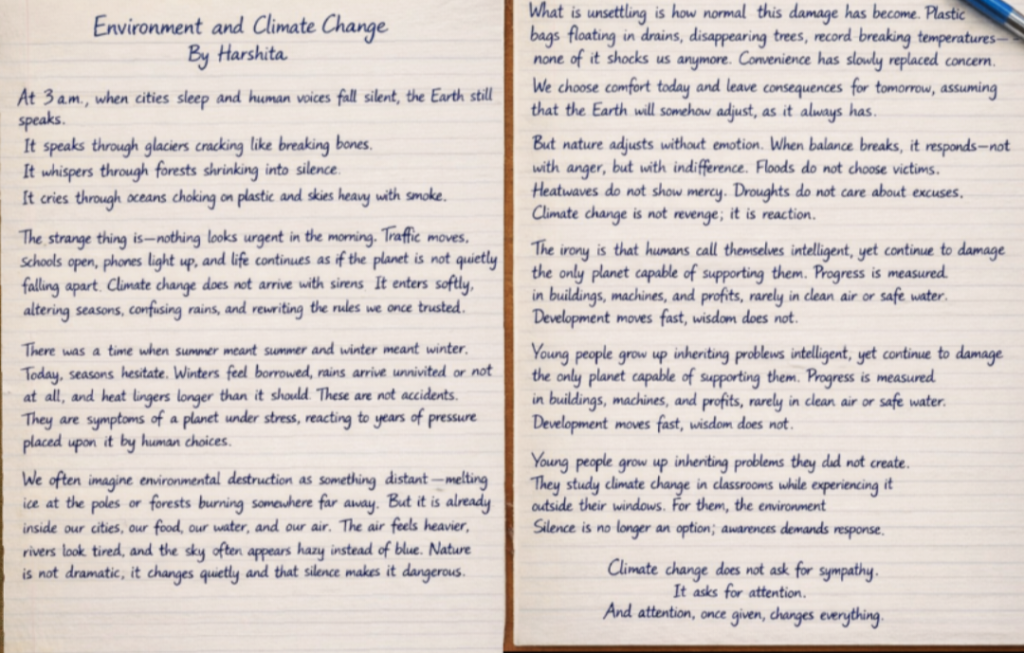 Environment and Climate Change
By Harshita
At 3 a.m., when cities sleep and human voices fall silent, the Earth still
speaks.
It speaks through glaciers cracking like breaking bones.
It whispers through forests shrinking into silence.
It cries through oceans choking on plastic and skies heavy with smoke.
The strange thing is—nothing looks urgent in the morning. Traffic moves,
schools open, phones light up, and life continues as if the planet is not quietly
falling apart. Climate change does not arrive with sirens It enters softly,
altering seasons, confusing rains, and rewriting the rules we once trusted.
There was a time when summer meant summer and winter meant winter.
Today, seasons hesitate. Winters feel borrowed, rains arrive unnivited or not
at all, and heat lingers longer than it should. These are not accidents.
They are symptoms of a planet under stress, reacting to years of pressure
placed upon it by human choices.
We often imagine environmental destruction as something distant—melting
ice at the poles or forests burning somewhere far away. But it is already
inside our cities, our food, our water, and our air. The air feels heavier,
rivers look tired, and the sky often appears hazy instead of blue. Nature
is not dramatic, it changes quietly and that silence makes it dangerous.
What is unsettling is how normal this damage has become. Plastic
bags floating in drains, disappearing trees, record breaking temperatures—
none of it shocks us anymore. Convenience has slowly replaced concern.
We choose comfort today and leave consequences for tomorrow, assuming
that the Earth will somehow adjust, as it always has.
But nature adjusts without emotion. When balance breaks, it responds—not
with anger, but with indifference. Floods do not choose victims.
Heatwaves do not show mercy. Droughts do not care about excuses.
Climate change is not revenge; it is reaction.
The irony is that humans call themselves intelligent, yet continue to damage
the only planet capable of supporting them. Progress is measured
in buildings, machines, and profits, rarely in clean air or safe water.
Development moves fast, wisdom does not.
Young people grow up inheriting problews intelligent, yet continue to damage
the only planet capable of supporting them. Progress is measured
in buildings, machines, and profits, rarely in clean air or safe water.
Development moves fast, wisdom does not.
Young people grow up inheriting problems they did not create.
They study climate change in classrooms while experiencing it
outside their windows. For them, the environment
Silence is no longer an option; awarences demands response.
Climate change does not ask for sympathy.
It asks for attention.
And attention, once given, changes everything.